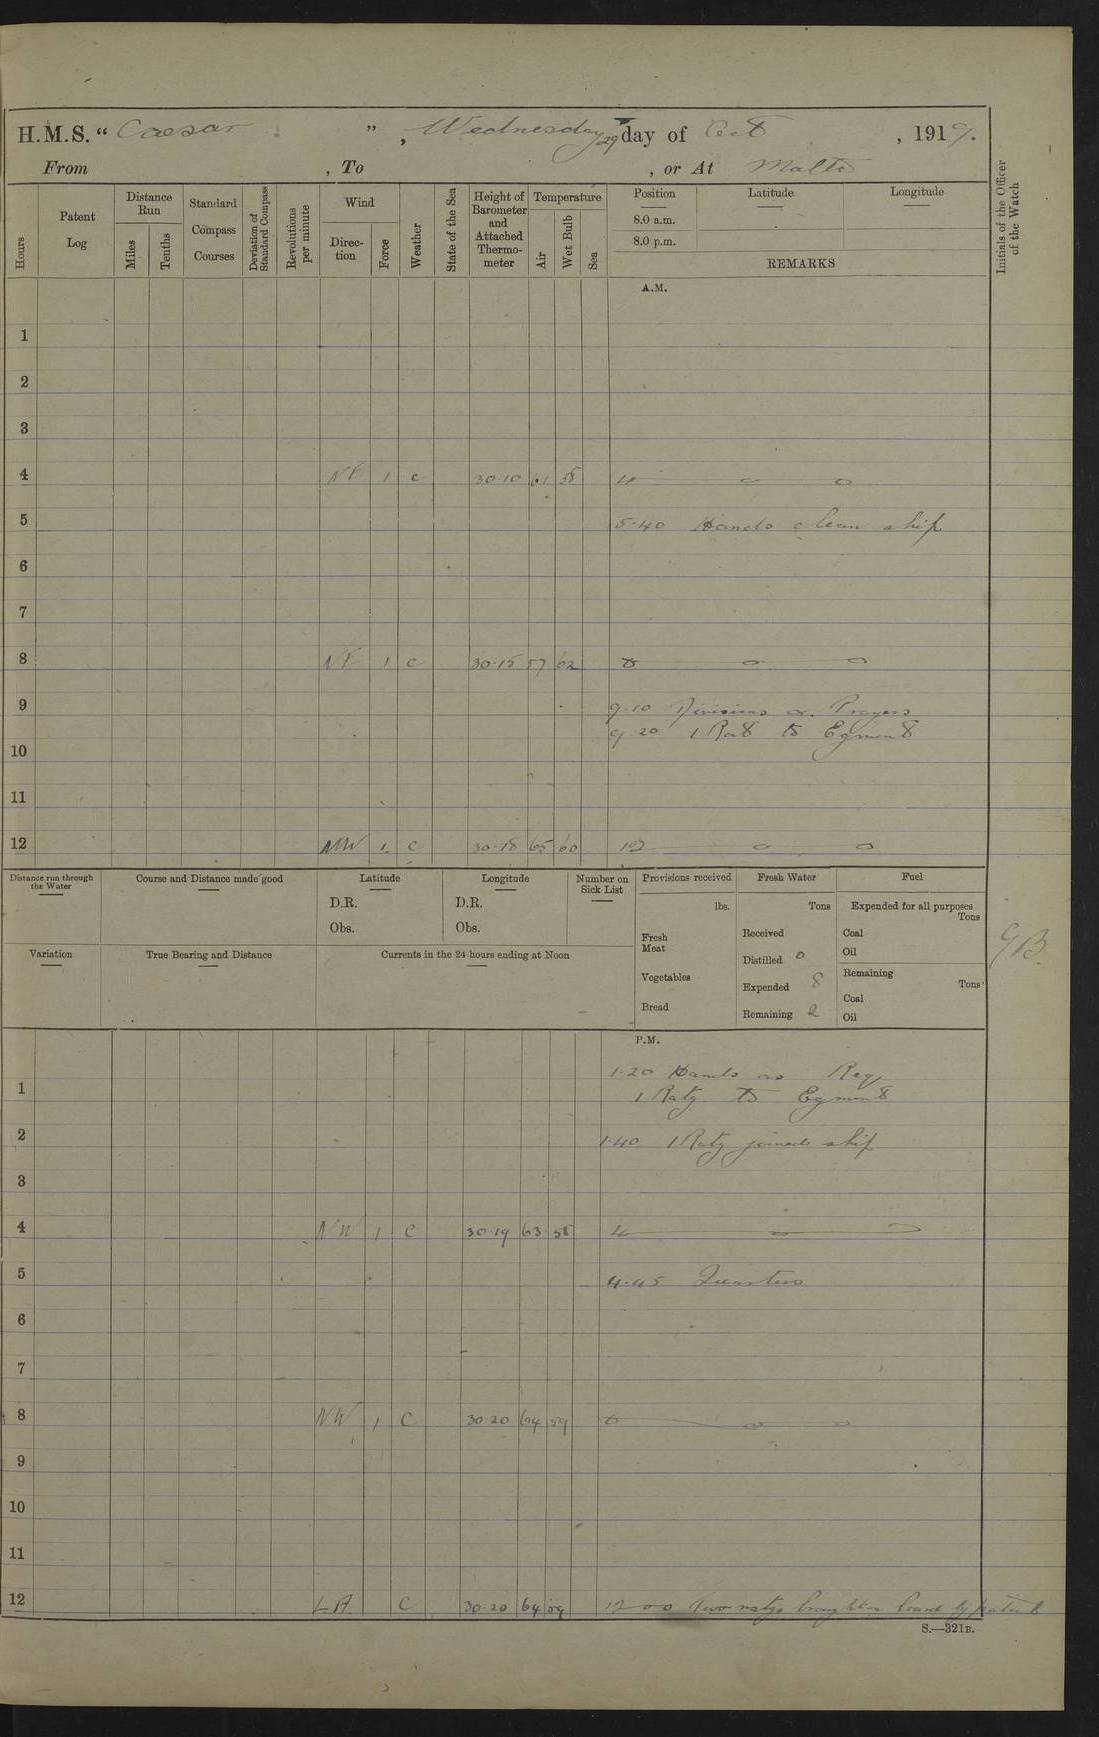 H.M.S. “ Caesar ” , Wednesday 29 day of Oct , 1919.
From , To , or At Malta
Hours
Patent Log
Distance Run
Miles
Tenths
Standard Compass Courses
Deviation of Standard Compass
Revolutions per minute
Wind
Direction
Force
Weather
State of the Sea
Height of Barometer and Attached Thermometer
Temperature
Air
Wet Bulb
Sea
Position
Latitude
Longitude
8.0 a.m.
8.0 p.m.
REMARKS
Initials of the Officer of the Watch
A.M.
1
2
3
4 NE 1 c 30·10 61 58 4
5 5·40 Hands clean ship
6
7
8 NE 1 c 30·15 57 62 8
9 9·10 Divisions & Prayers
9·20 1 Rat to Egmont
10
11
12 NW 1 c 30·18 65 60 12
Distance run through the Water
Course and Distance made good
Latitude
D.R.
Obs.
Longitude
D.R.
Obs.
Number on Sick List
Provisions received
lbs.
Fresh Meat
Vegetables
Bread
Fresh Water
Tons
Received
Distilled 0
Expended 8
Remaining 2
Fuel
Expended for all purposes
Tons
Coal
Oil
Remaining
Tons
Coal
Oil
Variation
True Bearing and Distance
Currents in the 24 hours ending at Noon
GB.
P.M.
1·20 Hands as Req
1 1 Ratg to Egmont
2 1·40 1 Ratg joined ship
3
4 NW 1 c 30·19 63 58 4
5 4·45 Quarters
6
7
8 NW 1 c 30·20 64 59 8
9
10
11
12 LA c 30·20 64 59 12 00 Two ratgs brought on board by patrol
S.—321B.